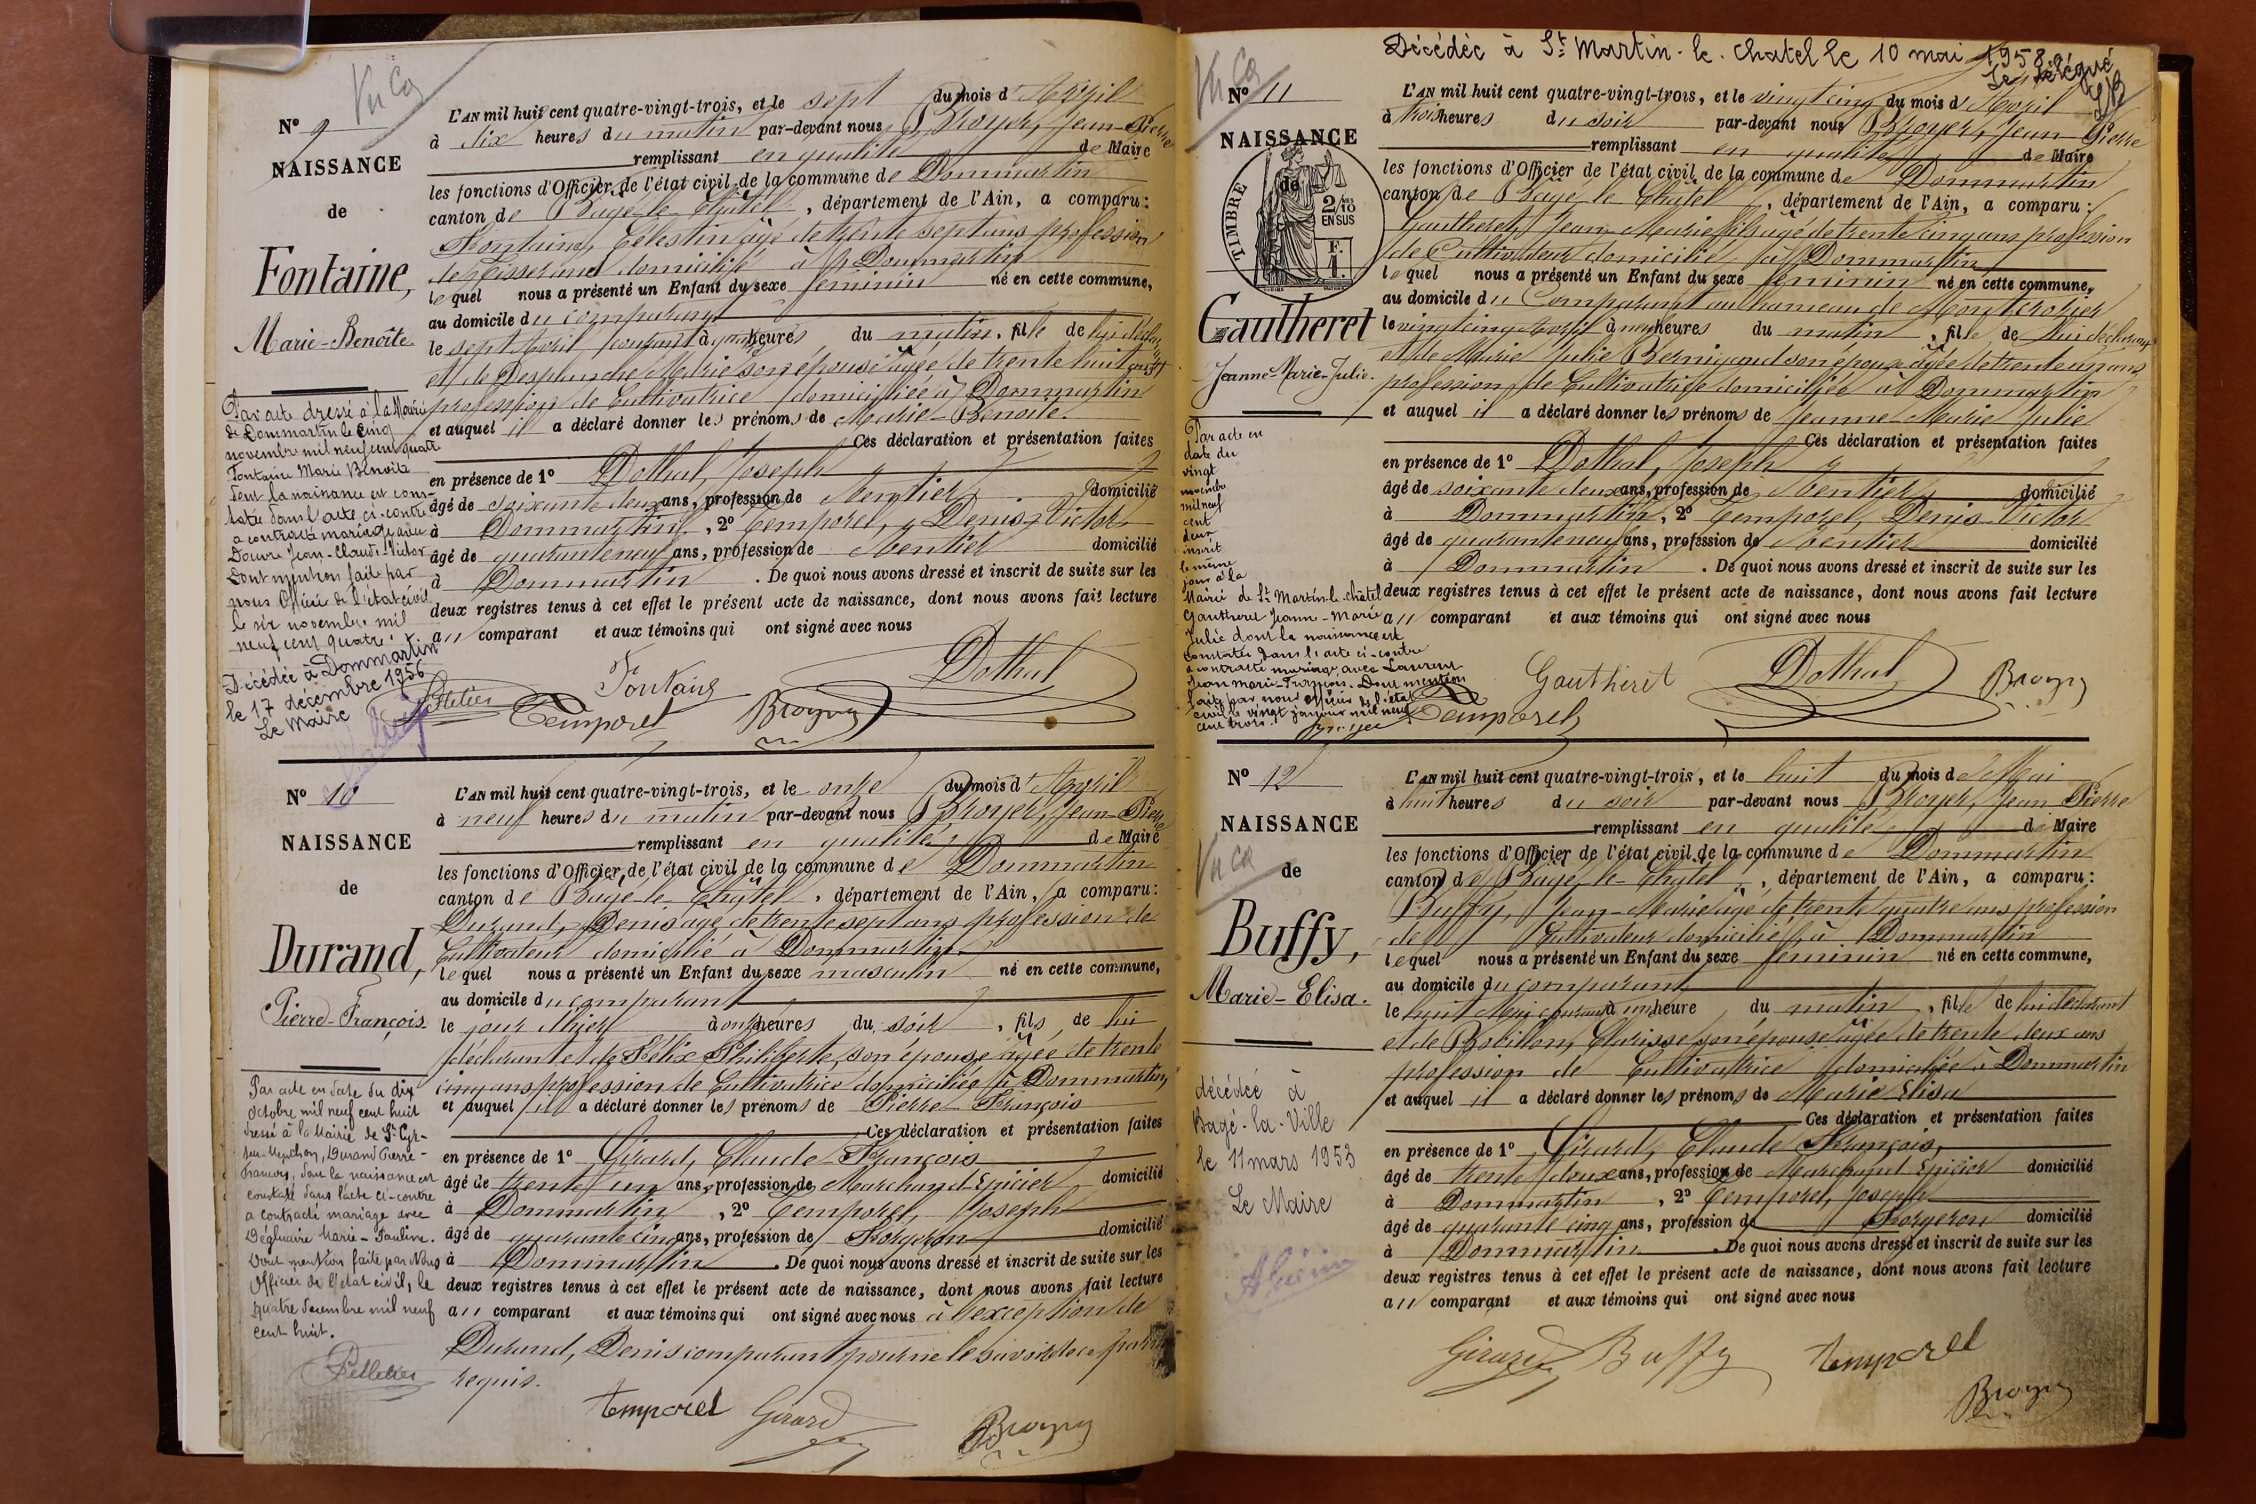 Vu Ca
N° 9
NAISSANCE
de
Fontaine,
Marie-Benoîte
L'AN mil huit cent quatre-vingt-trois, et le sept du mois d'Avril
à dix heures du matin par-devant nous Broyer, Jean-Pierre
remplissant en qualité de Maire
les fonctions d'Officier de l'état civil de la commune de Dommartin
canton de Bagé-le-Châtel, département de l'Ain, a comparu:
Fontaine, Célestin âgé de trente sept ans profession
de Tisserand domicilié à Dommartin
lequel nous a présenté un Enfant du sexe féminin né en cette commune,
au domicile du comparant
le sept Avril courant à heures du matin, fille de lui déclarant
et de Desplanche Marie son épouse âgée de trente huit ans
profession de Cultivatrice domiciliée à Dommartin
et auquel il a déclaré donner les prénoms de Marie-Benoite.
Ces déclaration et présentation faites
en présence de 1° Dothal, Joseph
âgé de soixante deux ans, profession de Rentier domicilié
à Dommartin, 2° Temporel, Denis-Victor
âgé de quaranteneuf ans, profession de Rentier domicilié
à Dommartin. De quoi nous avons dressé et inscrit de suite sur les
deux registres tenus à cet effet le présent acte de naissance, dont nous avons fait lecture
au comparant et aux témoins qui ont signé avec nous
Par acte dressé à la Mairie
de Dommartin le cinq
novembre mil neuf cent quatre
Fontaine Marie Benoîte
dont la naissance est cons-
tatée dans l'acte ci-contre
a contracté mariage avec
Douvre Jean-Claude-Victor
Dont mention faite par
nous Officier de l'état civil
le six novembre mil
neuf cent quatre.
Pelletier
Décédée à Dommartin
le 17 décembre 1956
Le Maire
Fontaine
Dothal
Temporel
Broyer
N° 10
NAISSANCE
de
Durand,
Pierre-François.
L'AN mil huit cent quatre-vingt-trois, et le onze du mois d'Avril
à neuf heures du matin par-devant nous Broyer, Jean-Pierre
remplissant en qualité de Maire
les fonctions d'Officier de l'état civil de la commune de Dommartin
canton de Bagé-le-Châtel, département de l'Ain, a comparu:
Durand, Denis âgé de trente sept ans profession de
Cultivateur domicilié à Dommartin
lequel nous a présenté un Enfant du sexe masculin né en cette commune,
au domicile du comparant
le jour d'hier à onze heures du soir, fils de lui
déclarant et de Félix Philiberte, son épouse âgée de trente
cinq ans profession de Cultivatrice domiciliée à Dommartin,
et auquel il a déclaré donner les prénoms de Pierre-François
Ces déclaration et présentation faites
en présence de 1° Girard, Claude-François
âgé de trente un ans, profession de Marchand Epicier domicilié
à Dommartin, 2° Temporel, Joseph
âgé de quarante cinq ans, profession de Forgeron domicilié
à Dommartin. De quoi nous avons dressé et inscrit de suite sur les
deux registres tenus à cet effet le présent acte de naissance, dont nous avons fait lecture
au comparant et aux témoins qui ont signé avec nous à l'exception de
Durand, Denis comparant pour ne le savoir de ce
requis.
Par acte en date du dix
Octobre mil neuf cent huit
dressé à la Mairie de St Cyr-
sur-Menthon, Durand Pierre-
François, dont la naissance est
constatée dans l'acte ci-contre
a contracté mariage avec
Marie-Pauline.
Dont mention faite par Nous
Officier de l'état civil, le
quatre décembre mil neuf
cent huit.
Pelletier
Temporel
Girard
Broyer
Décédée à St Martin-le-Chatel le 10 mai 1958
Le délégué
Vu Ca
N° 11
NAISSANCE
de
TIMBRE
2/10
EN SUS
F.
1.
Gautheret
Jeanne-Marie-Julie.
L'AN mil huit cent quatre-vingt-trois, et le vingt cinq du mois d'Avril
à trois heures du soir par-devant nous Broyer, Jean-Pierre
remplissant en qualité de Maire
les fonctions d'Officier de l'état civil de la commune de Dommartin
canton de Bagé-le-Châtel, département de l'Ain, a comparu:
Gautheret, Jean-Marie fils âgé de trente cinq ans profession
de Cultivateur domicilié à Dommartin
lequel nous a présenté un Enfant du sexe féminin né en cette commune,
au domicile du Comparant au hameau de Montcrozier
le vingt cinq Avril à neuf heures du matin, fille de lui déclarant
et de Marie Julie Bernigaud son épouse âgée de trente un ans
profession de Cultivatrice domiciliée à Dommartin
et auquel il a déclaré donner les prénoms de Jeanne-Marie Julie
Ces déclaration et présentation faites
en présence de 1° Dothal, Joseph
âgé de soixante deux ans, profession de Rentier domicilié
à Dommartin, 2° Temporel, Denis-Victor
âgé de quaranteneuf ans, profession de Rentier domicilié
à Dommartin. De quoi nous avons dressé et inscrit de suite sur les
deux registres tenus à cet effet le présent acte de naissance, dont nous avons fait lecture
au comparant et aux témoins qui ont signé avec nous
Par acte en
date du
vingt
novembre
mil neuf
cent
deux
inscrit
le même
jour à la
Mairie de St Martin-le-Châtel
Gautheret Jeanne-Marie
Julie dont la naissance est
constatée dans l'acte ci-contre
a contracté mariage avec Laurent
Jean Marie-François. Dont mention
faite par nous officier de l'état
civil le vingt janvier mil neuf
cent trois.
Gautheret
Dothal
Broyer
Temporel
N° 12
NAISSANCE
Vu Ca
de
Buffy,
Marie-Elisa.
L'AN mil huit cent quatre-vingt-trois, et le huit du mois de Mai
à huit heures du soir par-devant nous Broyer, Jean Pierre
remplissant en qualité de Maire
les fonctions d'Officier de l'état civil de la commune de Dommartin
canton de Bagé-le-Châtel, département de l'Ain, a comparu:
Buffy, Jean-Marie âgé de trente quatre ans profession
de Cultivateur domicilié à Dommartin
lequel nous a présenté un Enfant du sexe féminin né en cette commune,
au domicile du comparant
le huit Mai courant à une heure du matin, fille de lui déclarant
et de Robillon, Clarisse son épouse âgée de trente deux ans
profession de Cultivatrice domiciliée à Dommartin
et auquel il a déclaré donner les prénoms de Marie Elisa
Ces déclaration et présentation faites
en présence de 1° Girard, Claude François,
âgé de trente deux ans, profession de Marchand Epicier domicilié
à Dommartin, 2° Temporel, Joseph
âgé de quarante cinq ans, profession de Forgeron domicilié
à Dommartin. De quoi nous avons dressé et inscrit de suite sur les
deux registres tenus à cet effet le présent acte de naissance, dont nous avons fait lecture
au comparant et aux témoins qui ont signé avec nous
décédée à
Bagé-la-Ville
le 11 mars 1953
Le Maire
Girard
Buffy
Temporel
Broyer